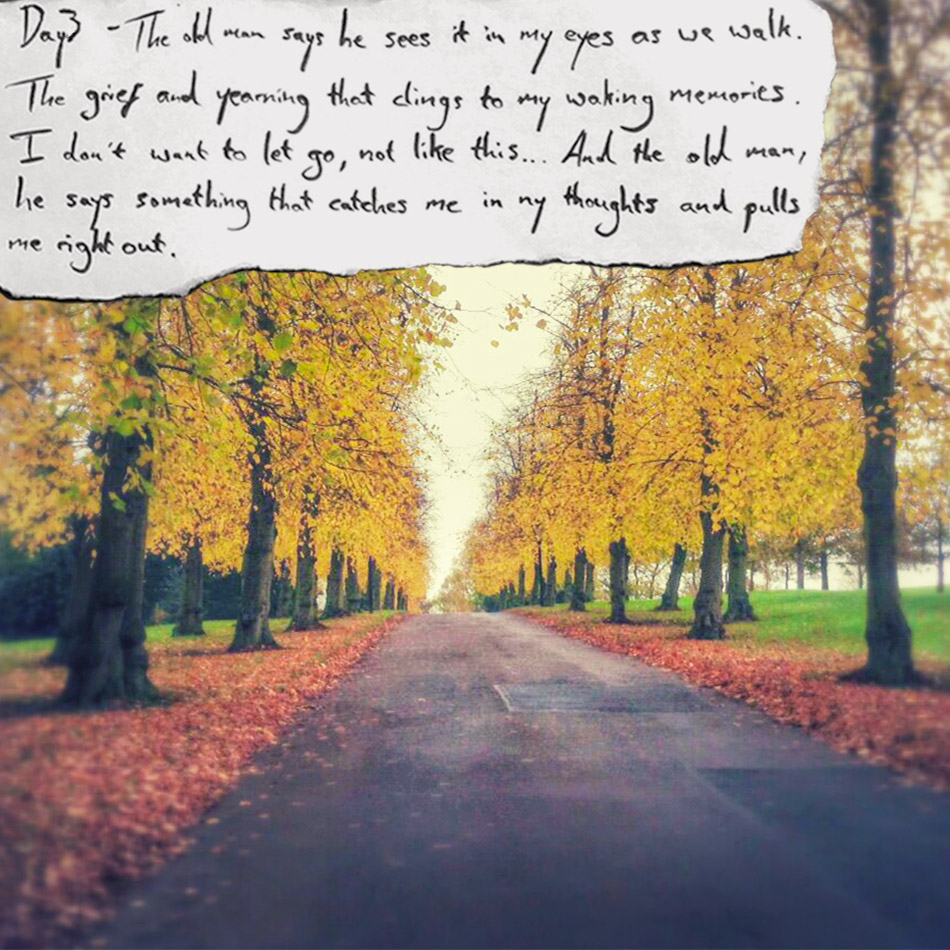 Day 3 - The old man says he sees it in my eyes as we walk.
The grief and yearning that clings to my waking memories.
I don't want to let go, not like this... And the old man,
he says something that catches me in my thoughts and pulls
me right out.